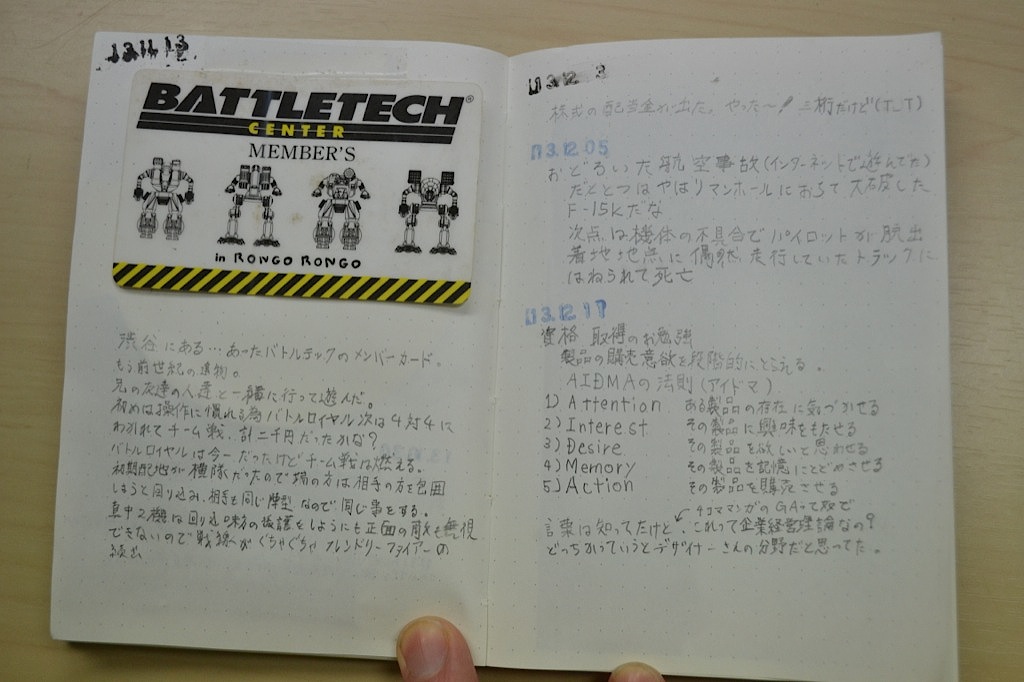 13.11.13
BATTLETECH®
CENTER
MEMBER'S
in RONGO RONGO
渋谷にある…あったバトルテックのメンバーカード。
もう前世紀の遺物。
兄の友達の人達と一緒に行って遊んだ。
初めは操作に慣れる為バトルロイヤル次は4対4に
わかれてチーム戦、計二千円だったかな?
バトルロイヤルは今一だったけどチーム戦は燃える。
初期配地が横隊だったので端の方は相手の方を包囲
しようと回り込み、相手も同じ陣型なので同じ事をする。
真中2機は回り込味方の援護をしようにも正面の敵も無視
できないので戦線がぐちゃぐちゃフレンドリーファイアーの
続出
13.12 3
株式の配当金が出た。やった〜! 三桁だけど(T_T)
13.12.05
おどろいた航空事故(インターネットで遊んでた)
だととつはやはりマンホールにおちて大破した
F-15kだな
次点は機体の不具合でパイロットが脱出
着地地点に偶然走行していたトラックに
はねられて死亡
13.12.17
資格取得のお勉強
製品の購売意欲を段階的にとらえる。
AIDMAの法則(アイドマ)
1) Attention ある製品の存在に気づかせる
2) Interest その製品に興味をもたせる
3) Desire その製品を欲しいと思わせる
4) Memory その製品を記憶にとどめさせる
5) Action その製品を購売させる
4コママンガのGAって奴で
言葉は知ってたけど これって企業経営理論なの?
どっちかっていうとデザイナーさんの分野だと思ってた。